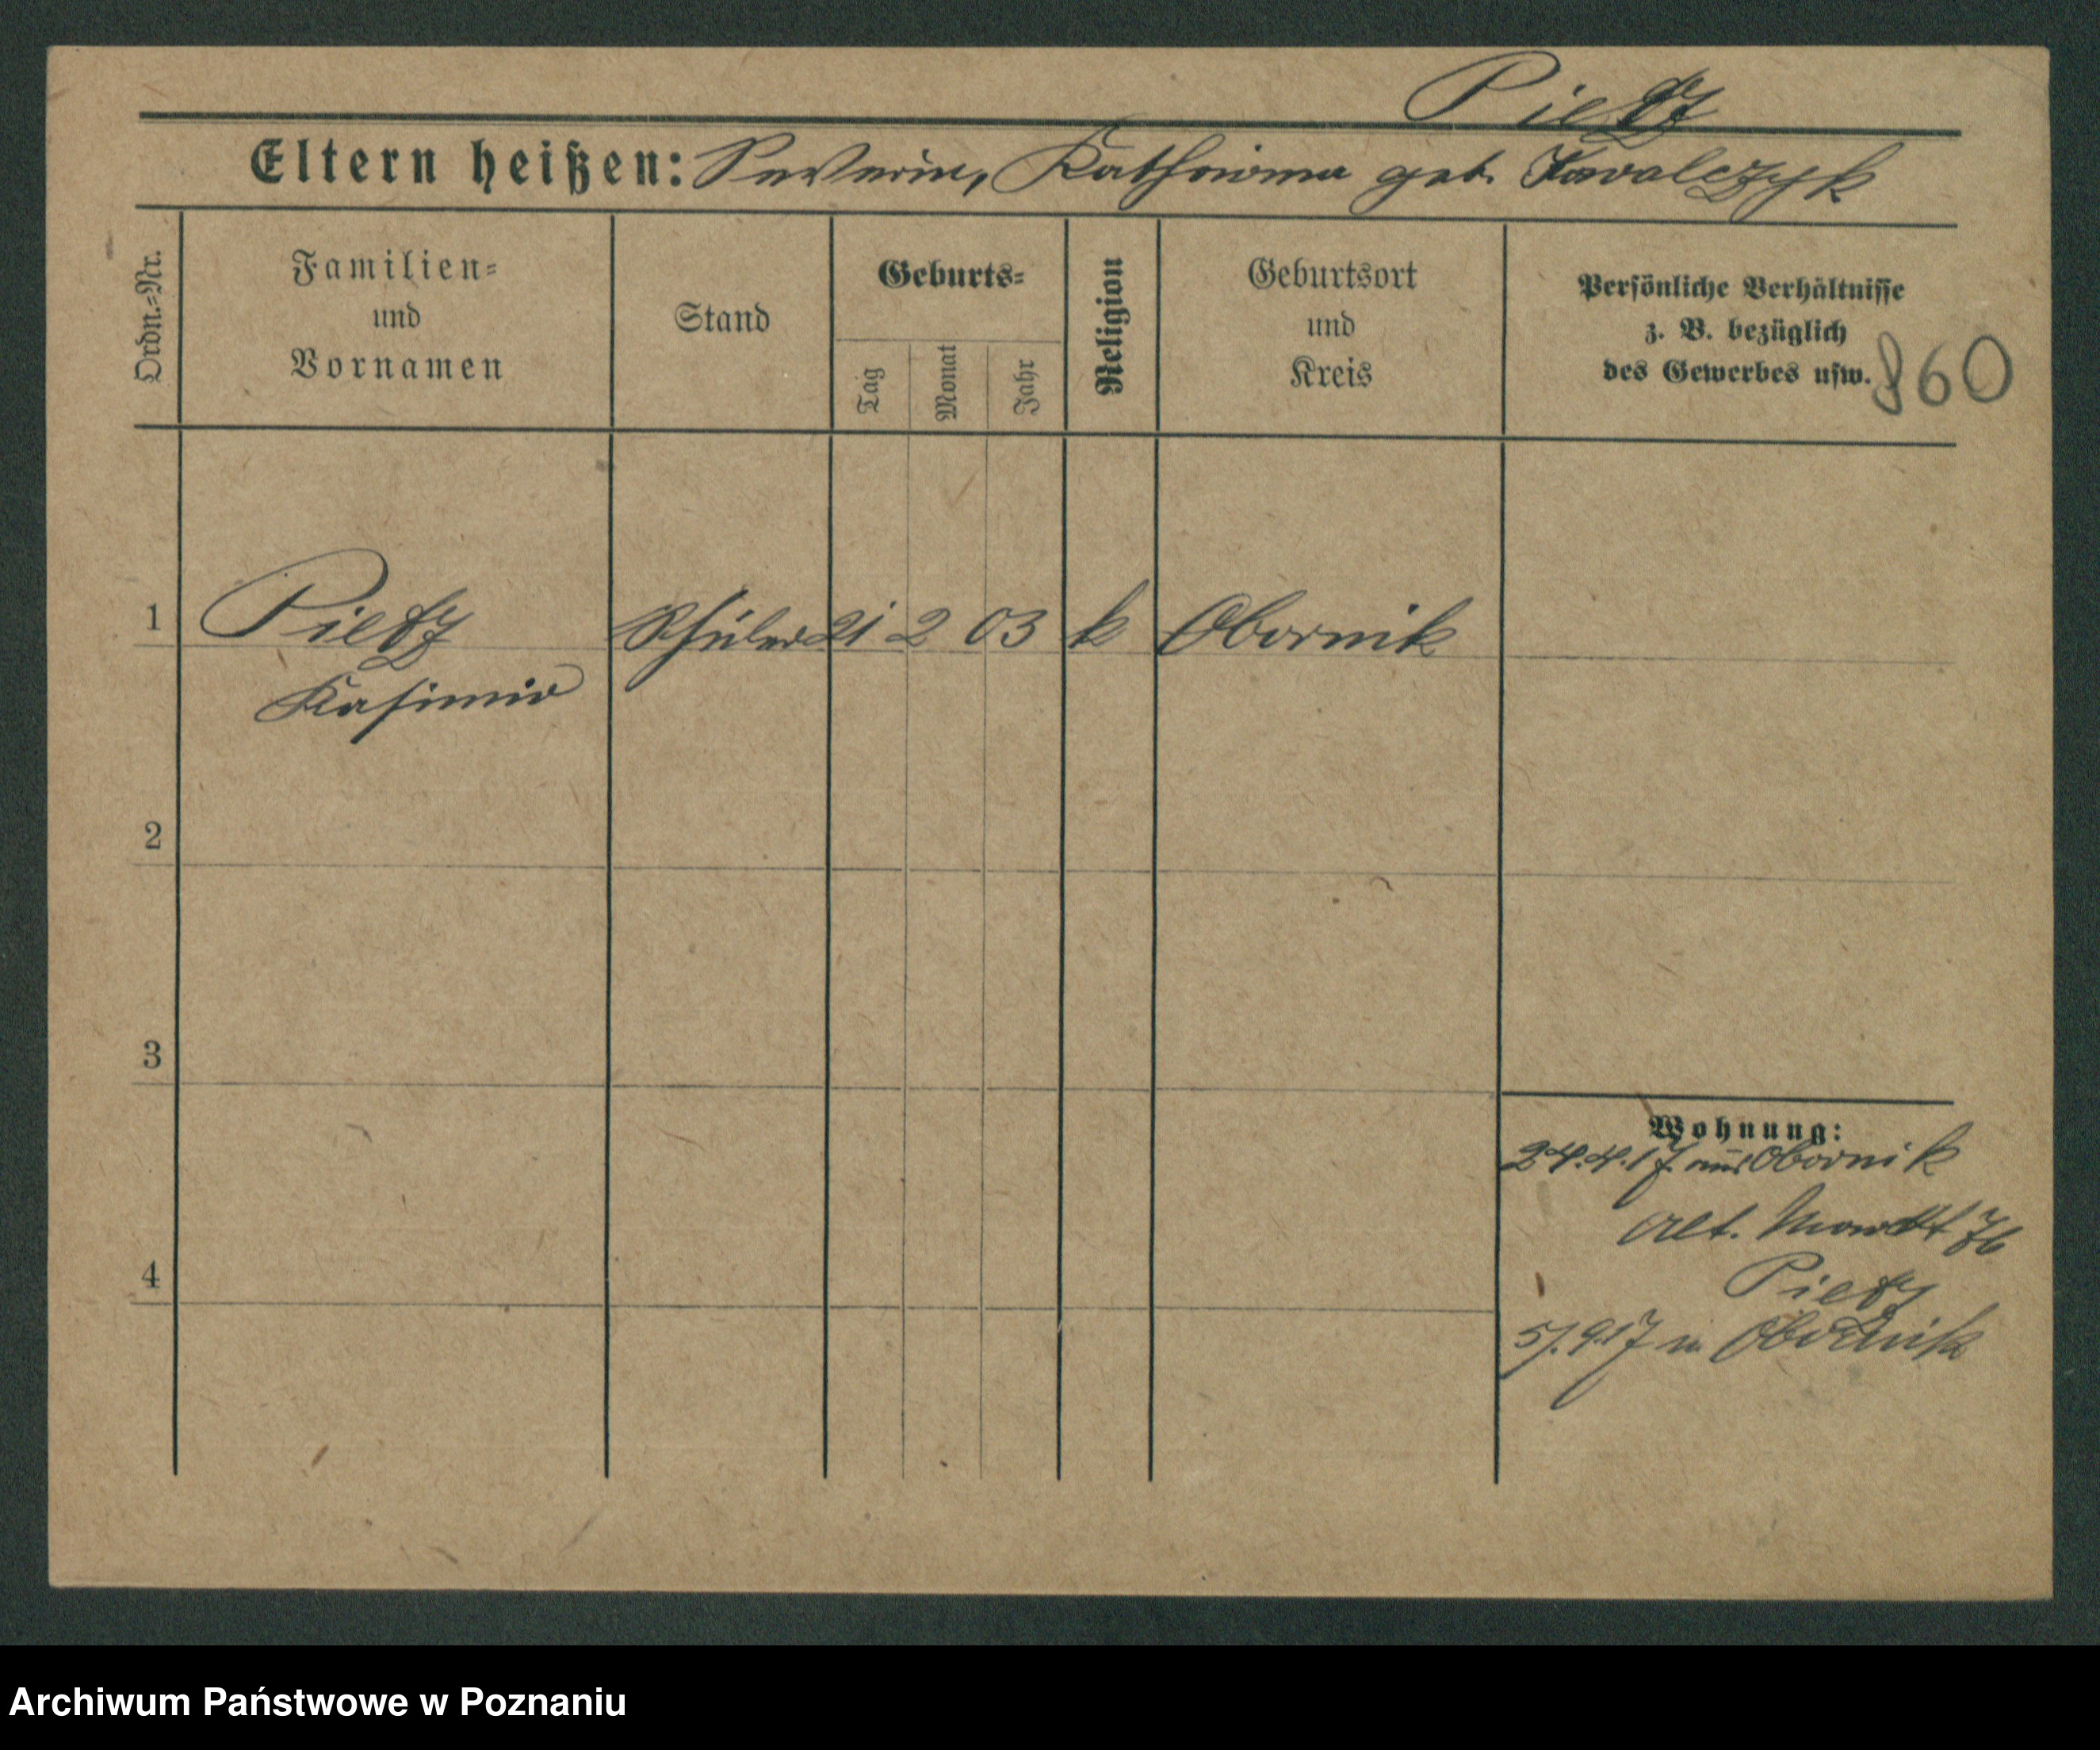 Pietz
Eltern heißen: Severin, Katharina geb. Kowalczyk
Ordn.-Nr.
Familien-
und
Vornamen
Stand
Geburts-
Tag
Monat
Jahr
Religion
Geburtsort
und
Kreis
Persönliche Verhältnisse
z. B. bezüglich
des Gewerbes usw.
860
1 Pietz Schüler 21 2 03 k Obornik
Kasimir
2
3
4
Wohnung:
24.4.17 aus Obornik
Alt. Markt 76
Pietz
5/.9.17 n Obornik
Archiwum Państwowe w Poznaniu